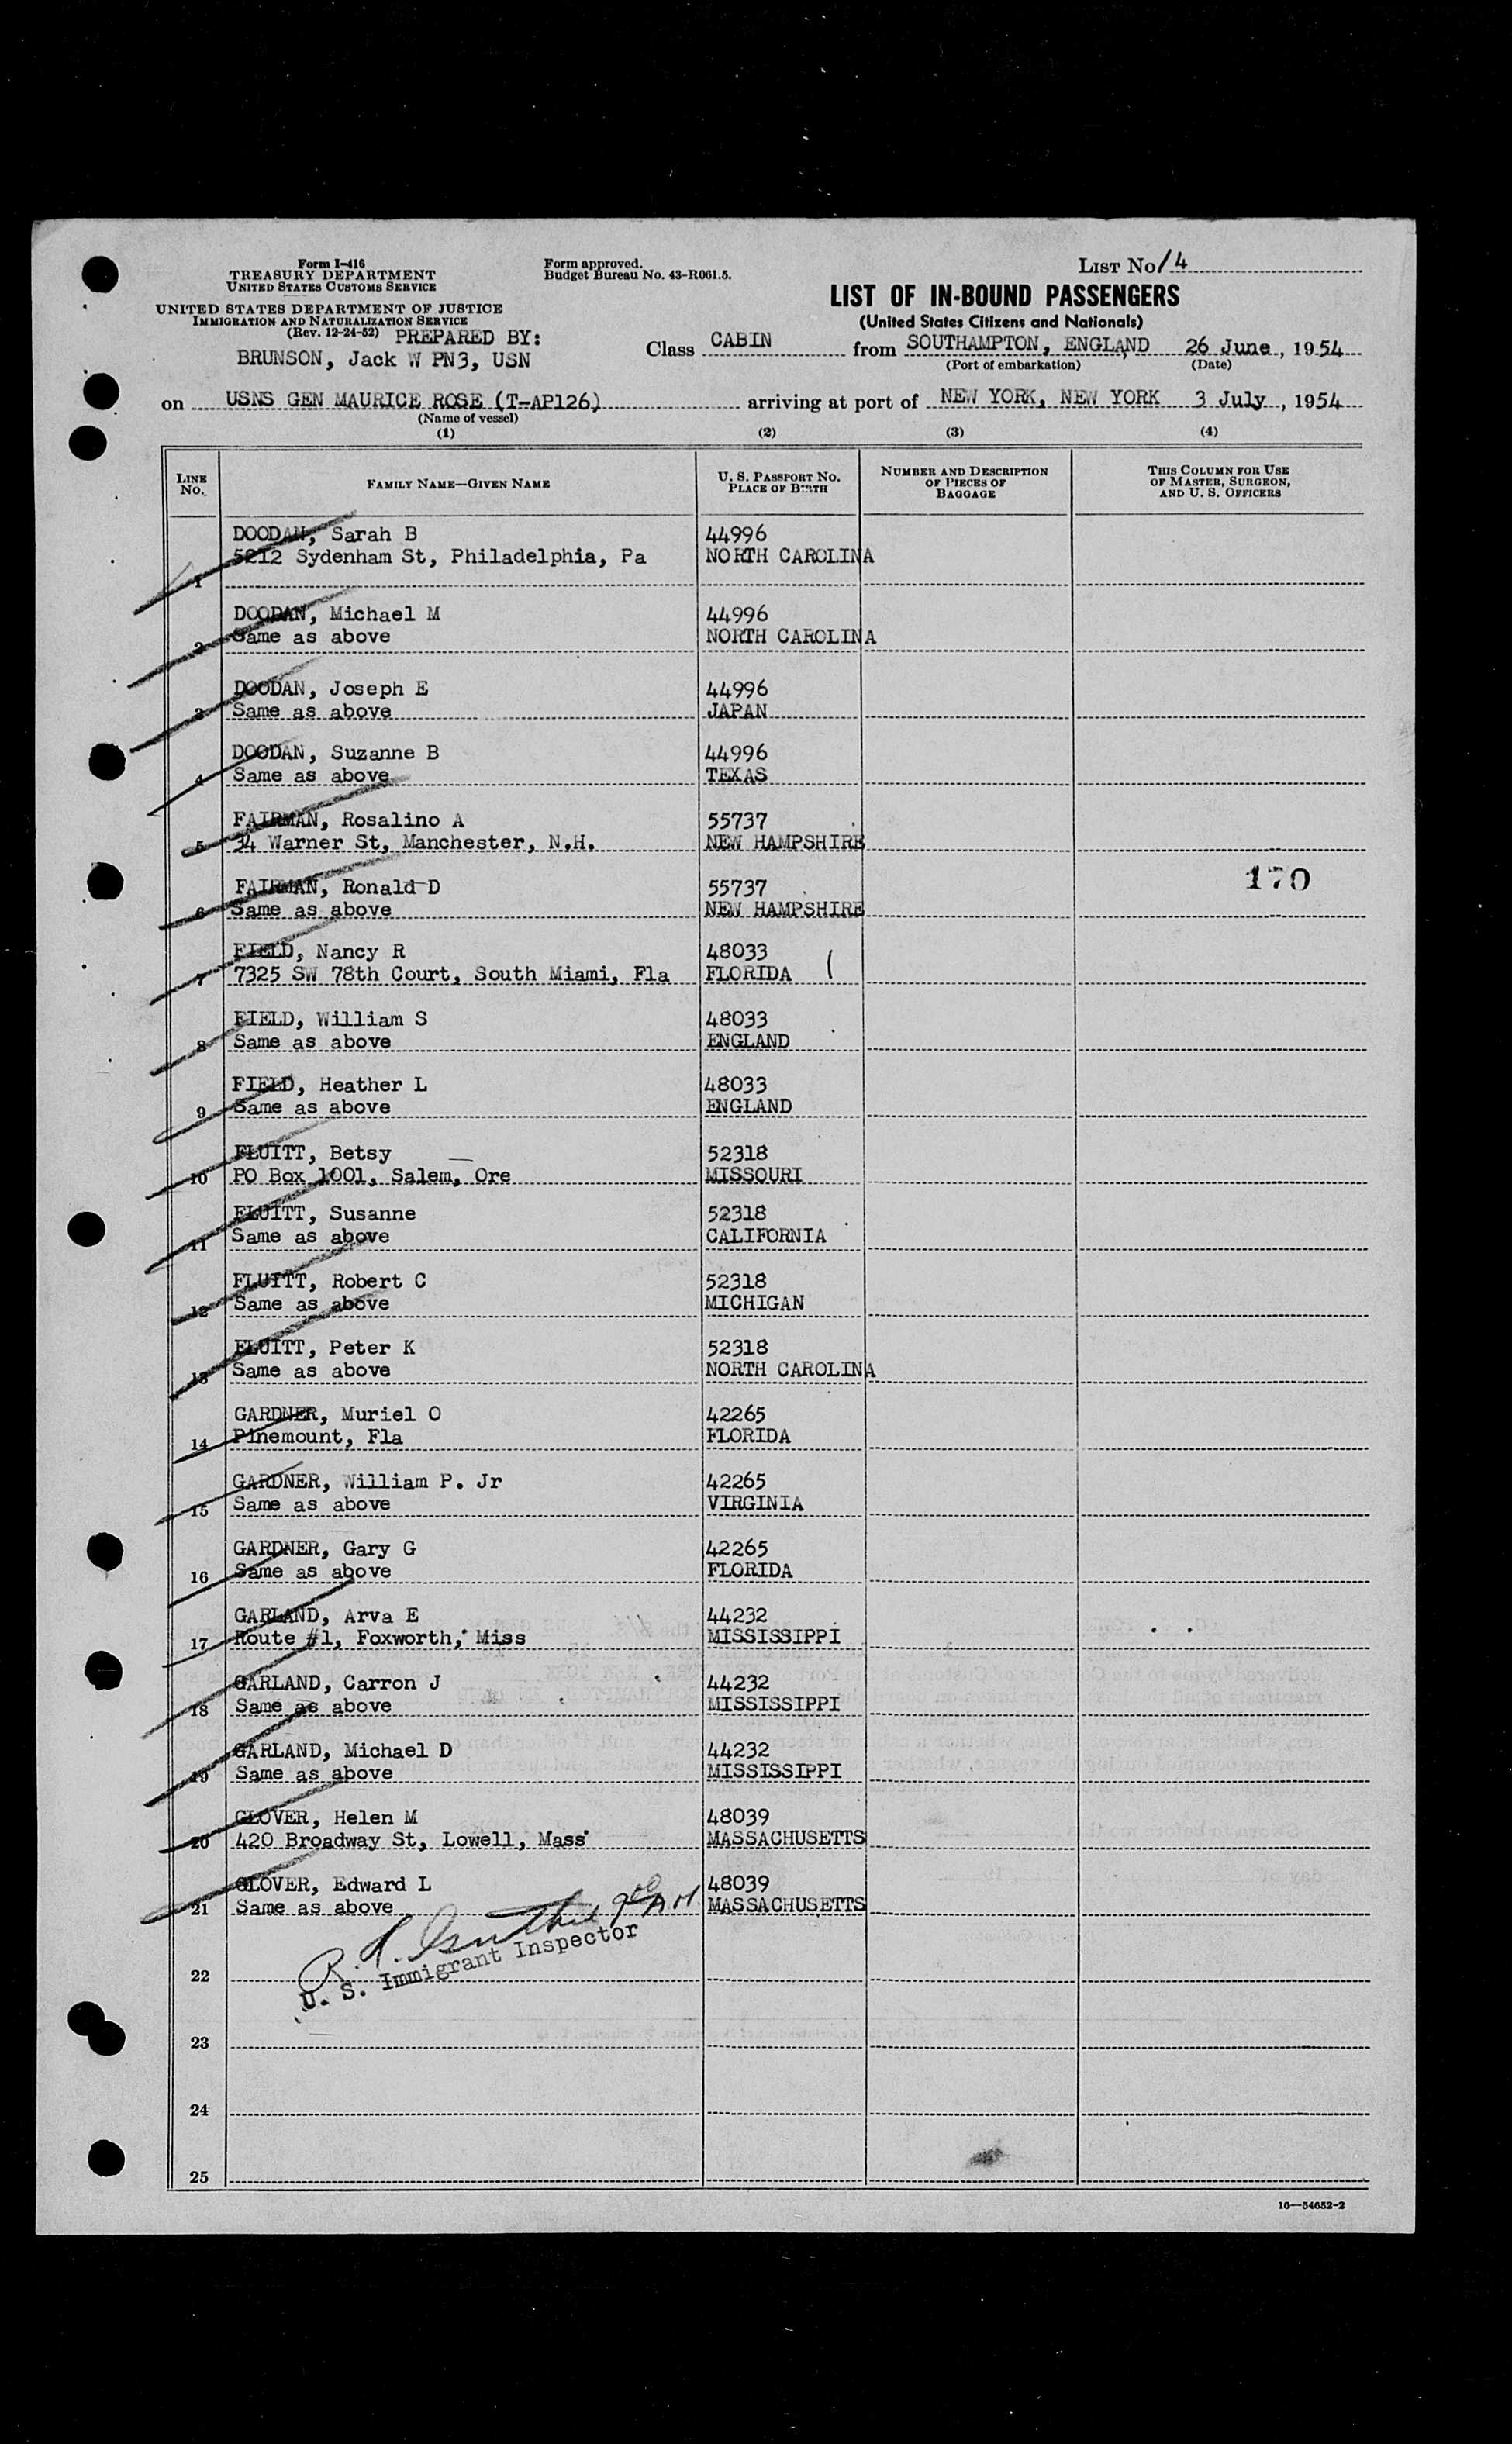 Form I-416
TREASURY DEPARTMENT
UNITED STATES CUSTOMS SERVICE
UNITED STATES DEPARTMENT OF JUSTICE
IMMIGRATION AND NATURALIZATION SERVICE
(Rev. 12-24-52) PREPARED BY:
BRUNSON, Jack W PN3, USN
Form approved.
Budget Bureau No. 43-R061.5.
LIST No 14
LIST OF IN-BOUND PASSENGERS
(United States Citizens and Nationals)
Class CABIN from SOUTHAMPTON, ENGLAND 26 June, 1954
(Port of embarkation) (Date)
on USNS GEN MAURICE ROSE (T-AP126) arriving at port of NEW YORK, NEW YORK 3 July, 1954
(Name of vessel)
(1) (2) (3) (4)
LINE No. FAMILY NAME—GIVEN NAME U. S. PASSPORT No. PLACE OF BIRTH NUMBER AND DESCRIPTION OF PIECES OF BAGGAGE THIS COLUMN FOR USE OF MASTER, SURGEON, AND U. S. OFFICERS
DOODAN, Sarah B 44996
5212 Sydenham St, Philadelphia, Pa NORTH CAROLINA
1
DOODAN, Michael M 44996
2 Same as above NORTH CAROLINA
DOODAN, Joseph E 44996
3 Same as above JAPAN
DOODAN, Suzanne B 44996
4 Same as above TEXAS
FAIRMAN, Rosalino A 55737
5 34 Warner St, Manchester, N.H. NEW HAMPSHIRE
170
FAIRMAN, Ronald D 55737
6 Same as above NEW HAMPSHIRE
FIELD, Nancy R 48033
7 7325 SW 78th Court, South Miami, Fla FLORIDA
FIELD, William S 48033
8 Same as above ENGLAND
FIELD, Heather L 48033
9 Same as above ENGLAND
FLUITT, Betsy 52318
10 PO Box 1001, Salem, Ore MISSOURI
FLUITT, Susanne 52318
11 Same as above CALIFORNIA
FLUITT, Robert C 52318
12 Same as above MICHIGAN
FLUITT, Peter K 52318
13 Same as above NORTH CAROLINA
GARDNER, Muriel O 42265
14 Pinemount, Fla FLORIDA
GARDNER, William P. Jr 42265
15 Same as above VIRGINIA
GARDNER, Gary G 42265
16 Same as above FLORIDA
GARLAND, Arva E 44232
17 Route #1, Foxworth, Miss MISSISSIPPI
GARLAND, Carron J 44232
18 Same as above MISSISSIPPI
GARLAND, Michael D 44232
19 Same as above MISSISSIPPI
GLOVER, Helen M 48039
20 420 Broadway St, Lowell, Mass MASSACHUSETTS
GLOVER, Edward L 48039
21 Same as above MASSACHUSETTS
U. S. Immigrant Inspector
22
23
24
25
16—54652-2